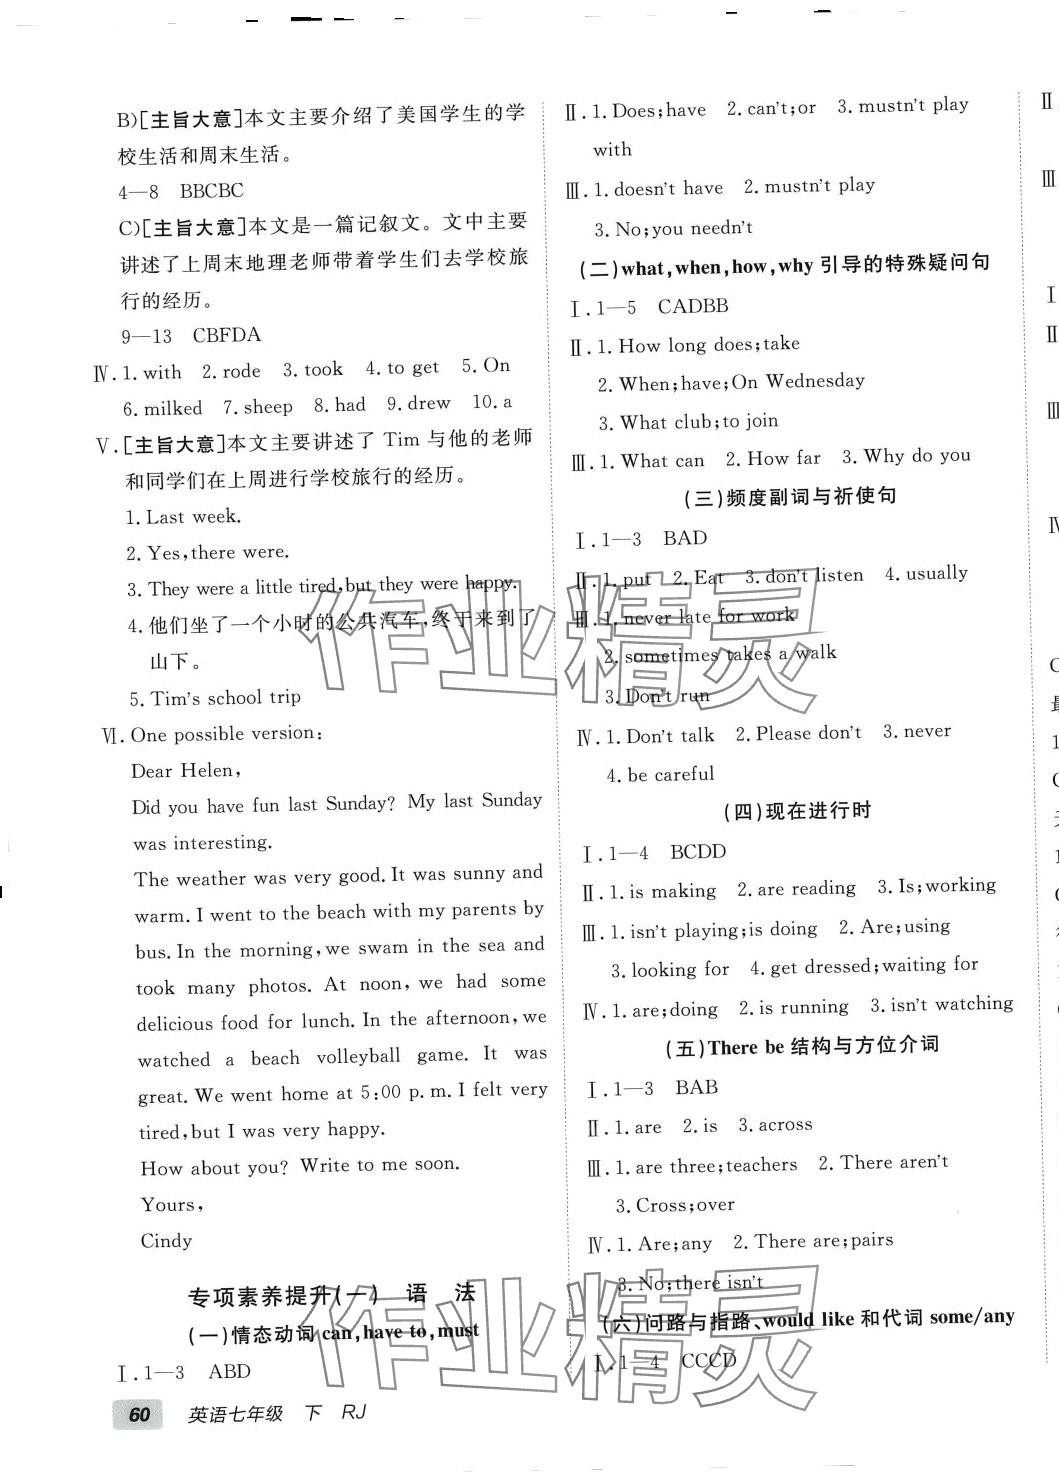 B)[主旨大意]本文主要介绍了美国学生的学
校生活和周末生活。
4—8 BBCBC
C)[主旨大意]本文是一篇记叙文。文中主要
讲述了上周末地理老师带着学生们去学校旅
行的经历。
9—13 CBFDA
Ⅳ.1. with 2. rode 3. took 4. to get 5. On
6. milked 7. sheep 8. had 9. drew 10. a
Ⅴ.[主旨大意]本文主要讲述了 Tim 与他的老师
和同学们在上周进行学校旅行的经历。
1. Last week.
2. Yes, there were.
3. They were a little tired, but they were happy.
4. 他们坐了一个小时的公共汽车,终于来到了
山下。
5. Tim's school trip
Ⅵ. One possible version:
Dear Helen,
Did you have fun last Sunday? My last Sunday
was interesting.
The weather was very good. It was sunny and
warm. I went to the beach with my parents by
bus. In the morning, we swam in the sea and
took many photos. At noon, we had some
delicious food for lunch. In the afternoon, we
watched a beach volleyball game. It was
great. We went home at 5:00 p. m. I felt very
tired, but I was very happy.
How about you? Write to me soon.
Yours,
Cindy
专项素养提升(一) 语 法
(一)情态动词 can, have to, must
Ⅰ.1—3 ABD
60 英语七年级 下 RJ
Ⅱ.1. Does;have 2. can't;or 3. mustn't play
with
Ⅲ.1. doesn't have 2. mustn't play
3. No;you needn't
(二)what, when, how, why 引导的特殊疑问句
Ⅰ.1—5 CADBB
Ⅱ.1. How long does;take
2. When;have;On Wednesday
3. What club;to join
Ⅲ.1. What can 2. How far 3. Why do you
(三)频度副词与祈使句
Ⅰ.1—3 BAD
Ⅱ.1. put 2. Eat 3. don't listen 4. usually
Ⅲ.1. never late for work
2. sometimes takes a walk
3. Don't run
Ⅳ.1. Don't talk 2. Please don't 3. never
4. be careful
(四)现在进行时
Ⅰ.1—4 BCDD
Ⅱ.1. is making 2. are reading 3. Is;working
Ⅲ.1. isn't playing;is doing 2. Are;using
3. looking for 4. get dressed;waiting for
Ⅳ.1. are;doing 2. is running 3. isn't watching
(五)There be 结构与方位介词
Ⅰ.1—3 BAB
Ⅱ.1. are 2. is 3. across
Ⅲ.1. are three;teachers 2. There aren't
3. Cross;over
Ⅳ.1. Are;any 2. There are;pairs
3. No;there isn't
(六)问路与指路、would like 和代词 some/any
Ⅰ.1—4 CCCD
Ⅱ
Ⅲ
Ⅰ
Ⅱ
Ⅲ
Ⅳ
作业精灵
作业精灵